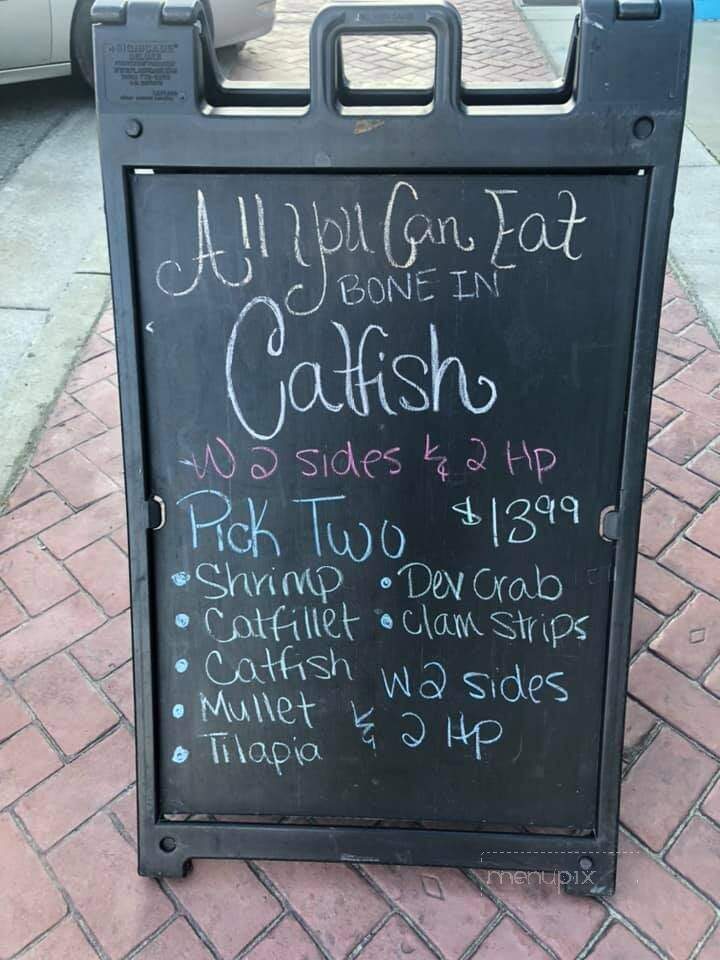 All You Can Eat
BONE IN
Catfish
W 2 sides & 2 Hp
Pick Two $13.99
• Shrimp
• Catfillet
• Catfish
• Mullet
• Tilapia
• Dev Crab
• Clam Strips
W 2 sides
& 2 Hp
menupix